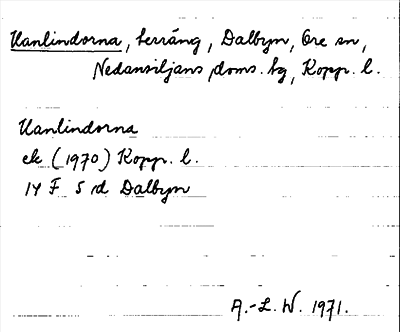 Hanlindorna, terräng, Dalbyn, Ore sn,
Nedansiljans doms. hg, Kopp. l.
Hanlindorna
ek (1970) Kopp. l.
14 F 5 d Dalbyn
A.-L. W. 1971.